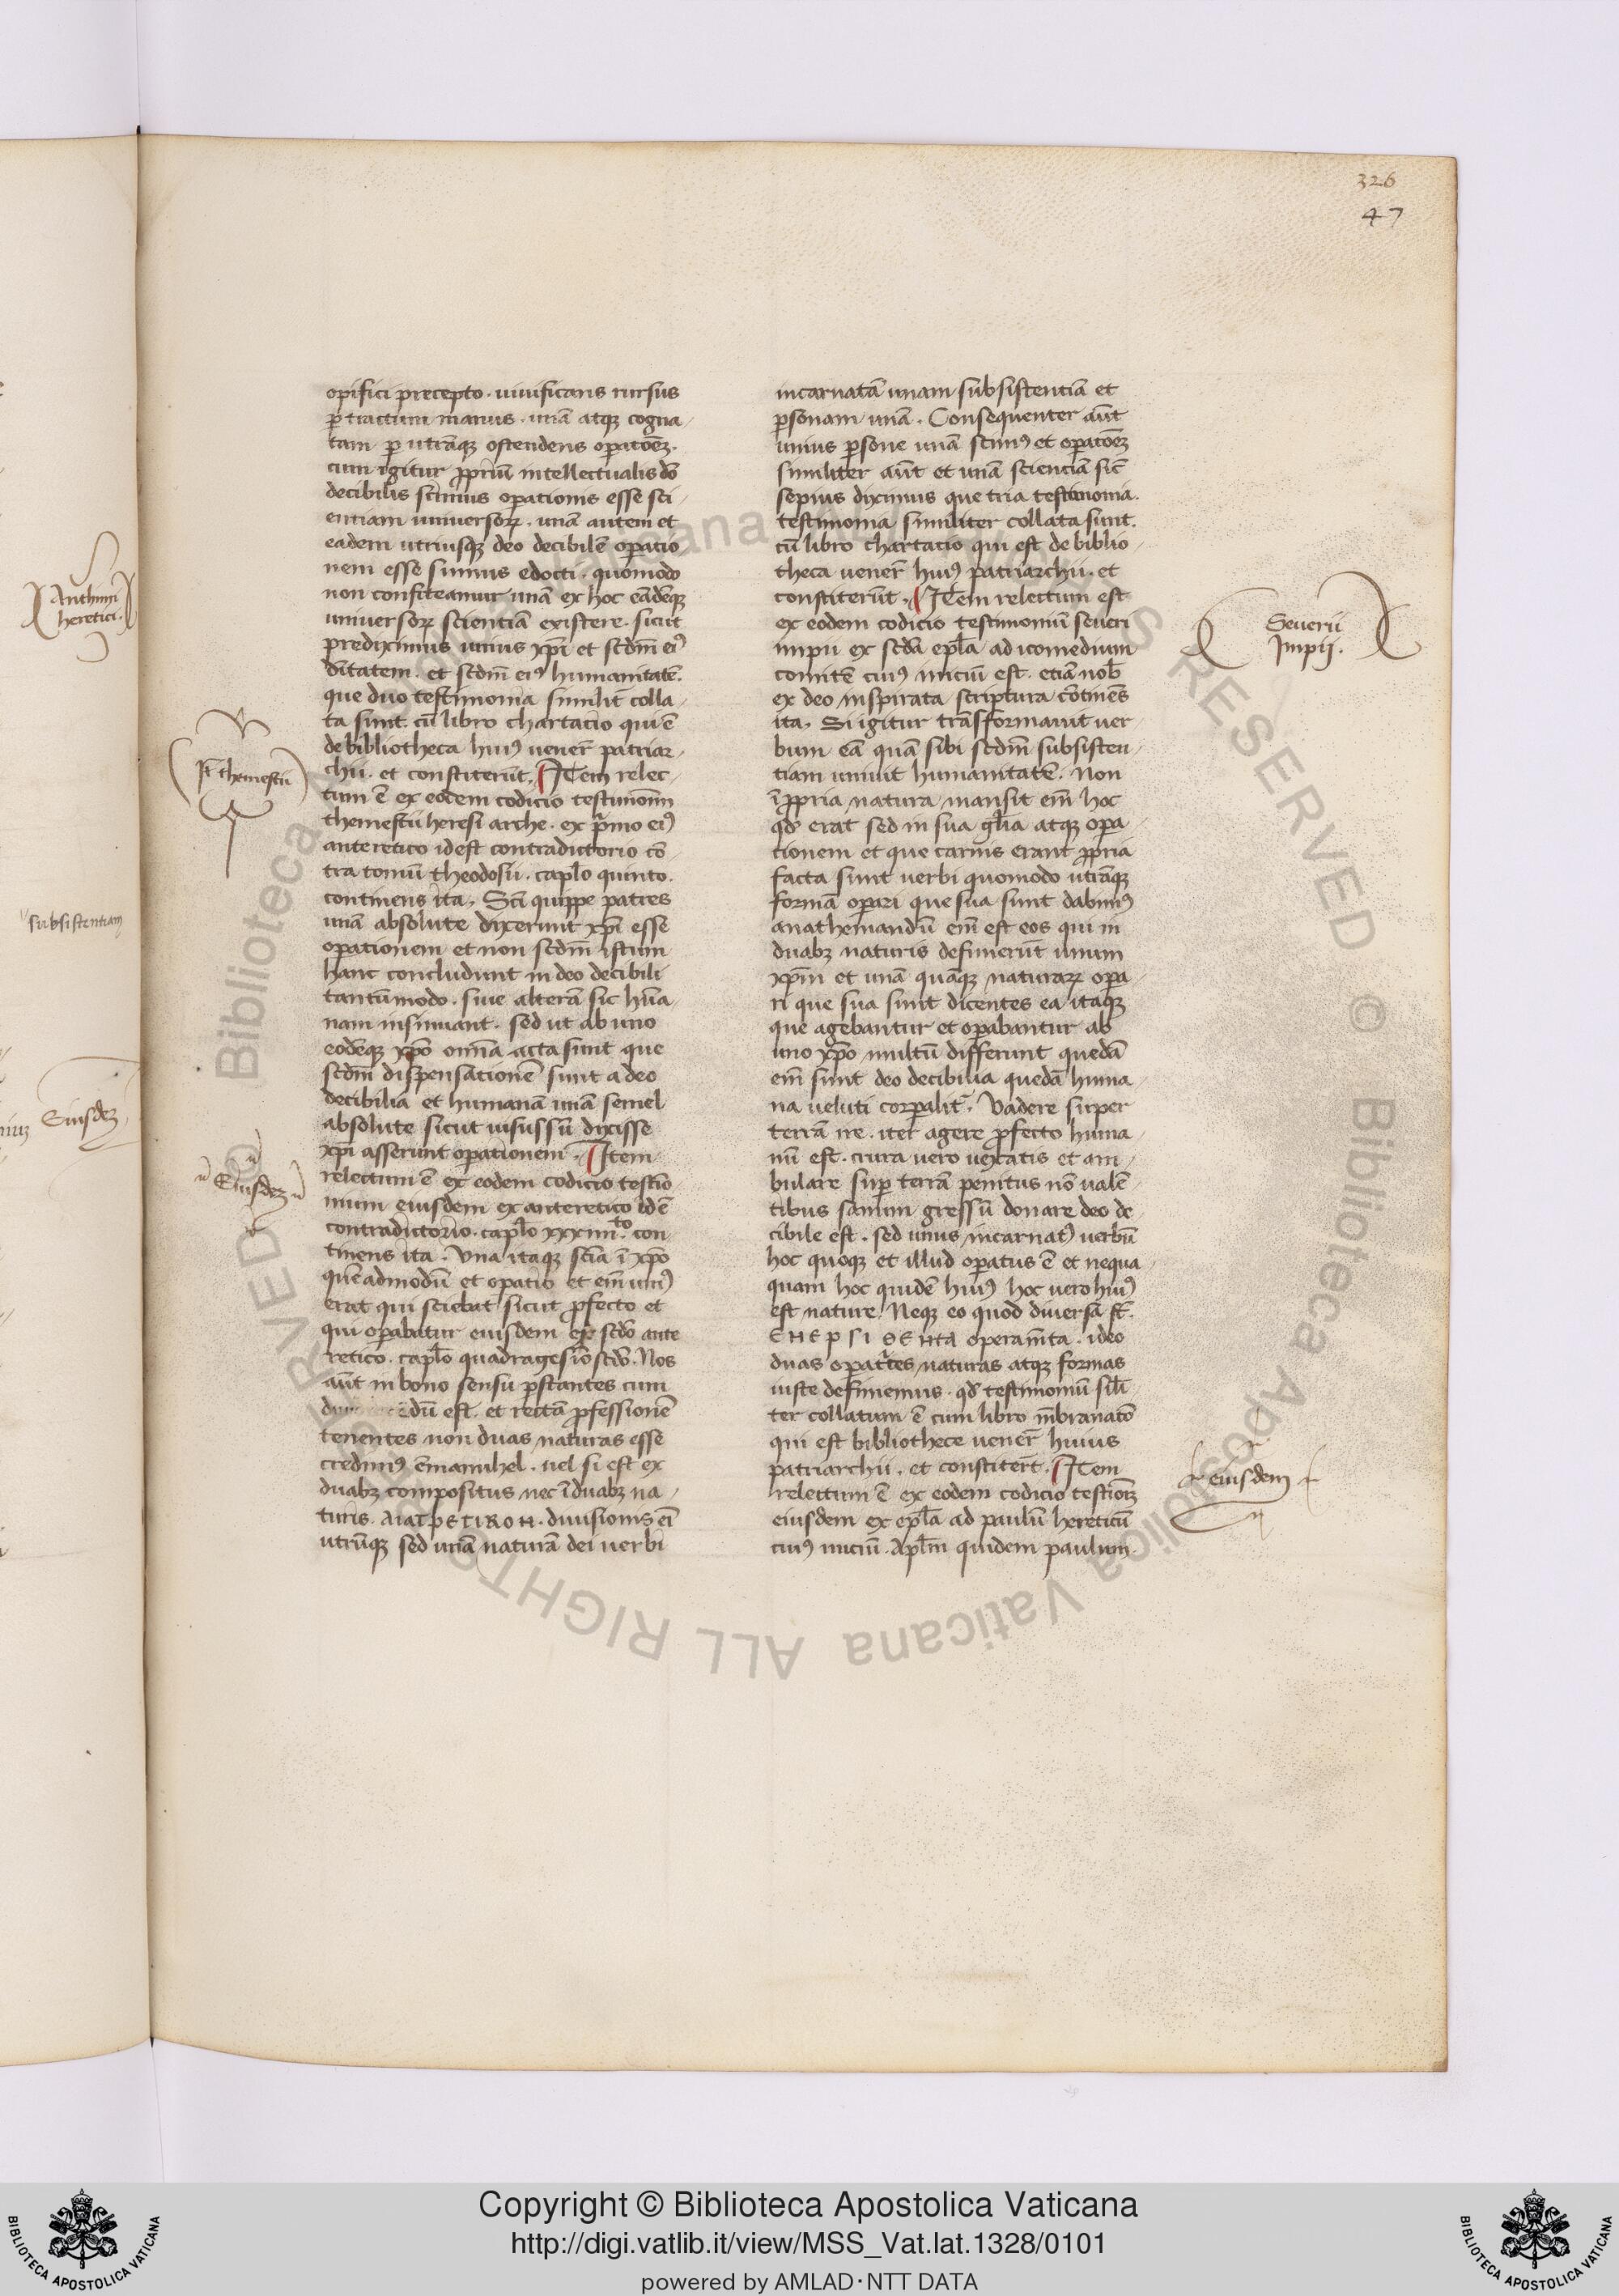 326
47
Anthimi
heretici.
It themestii
subsistentiam
Eiusdez
Eiusdez
opifici precepto. uiuificans rursus
ꝑ tractum manus. unā atqꝫ cogna
tam ꝑ utrāqꝫ ostendens oꝑatōeꝫ.
cum igitur ꝓpriū intellectualis dō
decibilis scimus oꝑationis esse sci
entiam uniuersoꝝ. unā autem et
eadem utriusqꝫ deo decibilē oꝑatio
nem esse sumus edocti. quomodo
non confiteamur unā ex hoc eādēqꝫ
uniuersoꝝ scientiā existere. sicut
prediximus unius xp̄i et scdm̄ eiꝰ
dītatem. et scdm̄ eiꝰ humanitatē.
que duo testimonia similit̄ colla
ta sunt. cū libro chartacio qui ē
de bibliotheca huiꝰ uener̄ patriar
chii. et constiterūt. Item relec
tum ē ex eodem codicio testimoniū
themestii heresi arche. ex p̄mo eiꝰ
anteretico id est contradictorio cō
tra tomū theodosii. capl̄o quinto.
continens ita. Sc̄i quippe patres
unā absolute dixerunt xp̄i esse
oꝑationem et non scdm̄ istum
hanc concludunt in deo decibili
tantūmodo. siue alterā sic hūa
nam insinuant. sed ut ab uno
eodēqꝫ xp̄o omīa acta sunt que
scdm̄ dispensationē sunt a deo
decibilia et humanā unā semel
absolute sicut iussū dixisse
xp̄i asserunt oꝑationem. Item
relectum ē ex eodem codicio testīo
nium eiusdem ex anteretico id ē
contradictorio. capl̄o xxxiiiito. con
tinens ita. Una itaqꝫ scīa ī xp̄o
quēadmodū et oꝑatio et em̄ uniꝰ
erat qui sciebat sicut ꝓfecto et
qui oꝑabatur eiusdem ex scdō ante
retico. capl̄o quadragesīo scdō. Nos
aūt in bono sensu p̄stantes cum
dū est. et rectā ꝓfessionē
tenentes non duas naturas esse
credimꝰ ēmanuhel. uel si est ex
duabꝫ compositus nec ī duabꝫ na
turis. ΑΙΑΤΡΕΤΙΚΟΝ. diuisionis eī
utrūqꝫ sed unā naturā dei uerbi
incarnatā unam subsistentiā et
ꝑsonam unā. Consequenter aūt
unius ꝑsone unā scimꝰ et oꝑatōeꝫ
similiter aūt et unā scienciā sic̄
sepius diximus que tria testimonia.
testimonia similiter collata sunt.
cū libro chartacio qui est de biblio
theca uener̄ huiꝰ patriarchii. et
constiterūt. Item relectum est
ex eodem codicio testimoniū seueri
impii ex scdā epl̄a ad icomedium
comitē cuiꝰ iniciū est. etiā nob̄
ex deo inspirata scriptura cōtinēs
ita. Si igitur trāsformauit uer
bum eā quā sibi scdm̄ subsisten
tiam uniuit humanitatē. Non
ī ꝓpria natura mansit em̄ hoc
qd̄ erat sed in sua gl̄ia atqꝫ oꝑa
tionem et que carnis erant ꝓpria
facta sunt uerbi quomodo utrāqꝫ
formā oꝑari que sua sunt dabimꝰ
anathemandū em̄ est eos qui in
duabꝫ naturis definierūt unum
xp̄m et unā quāqꝫ naturaꝝ oꝑa
ri que sua sunt dicentes ea itaqꝫ
que agebantur et oꝑabantur ab
uno xp̄o multū differunt quedā
em̄ sunt deo decibilia quedā huma
na ueluti corꝑalit̄. Vadere super
terrā ire. iter agere ꝓfecto huma
nū est. crura uero uexatis et am
bulare suꝑ terrā penitus nō ualē
tibus sanum gressū donare deo de
cibile est. sed unus incarnatꝰ uerbū
hoc quoqꝫ et illud oꝑatus ē et nequa
quam hoc quidē huiꝰ hoc uero huiꝰ
est nature. Neqꝫ eo quod diuersa st̄.
ΕΝΕΡΓΙΘΕΝΤΑ operam̄ta. ideo
duas oꝑat̄tes naturas atqꝫ formas
iuste definiemus. qd̄ testimoniū sil̄i
ter collatum ē cum libro m̄branatō
qui est bibliothece uener̄ huius
patriarchii. et constiter̄t. Item
relectum ē ex eodem codicio testīoꝫ
eiusdem ex epl̄a ad paulū hereticū
cuiꝰ iniciū. Apl̄m quidem paulum.
Seuerii
Impij.
eiusdem
Copyright © Biblioteca Apostolica Vaticana
http://digi.vatlib.it/view/MSS_Vat.lat.1328/0101
powered by AMLAD · NTT DATA
BIBLIOTECA APOSTOLICA VATICANA
BIBLIOTECA APOSTOLICA VATICANA
© Biblioteca Apostolica Vaticana ALL RIGHTS RESERVED